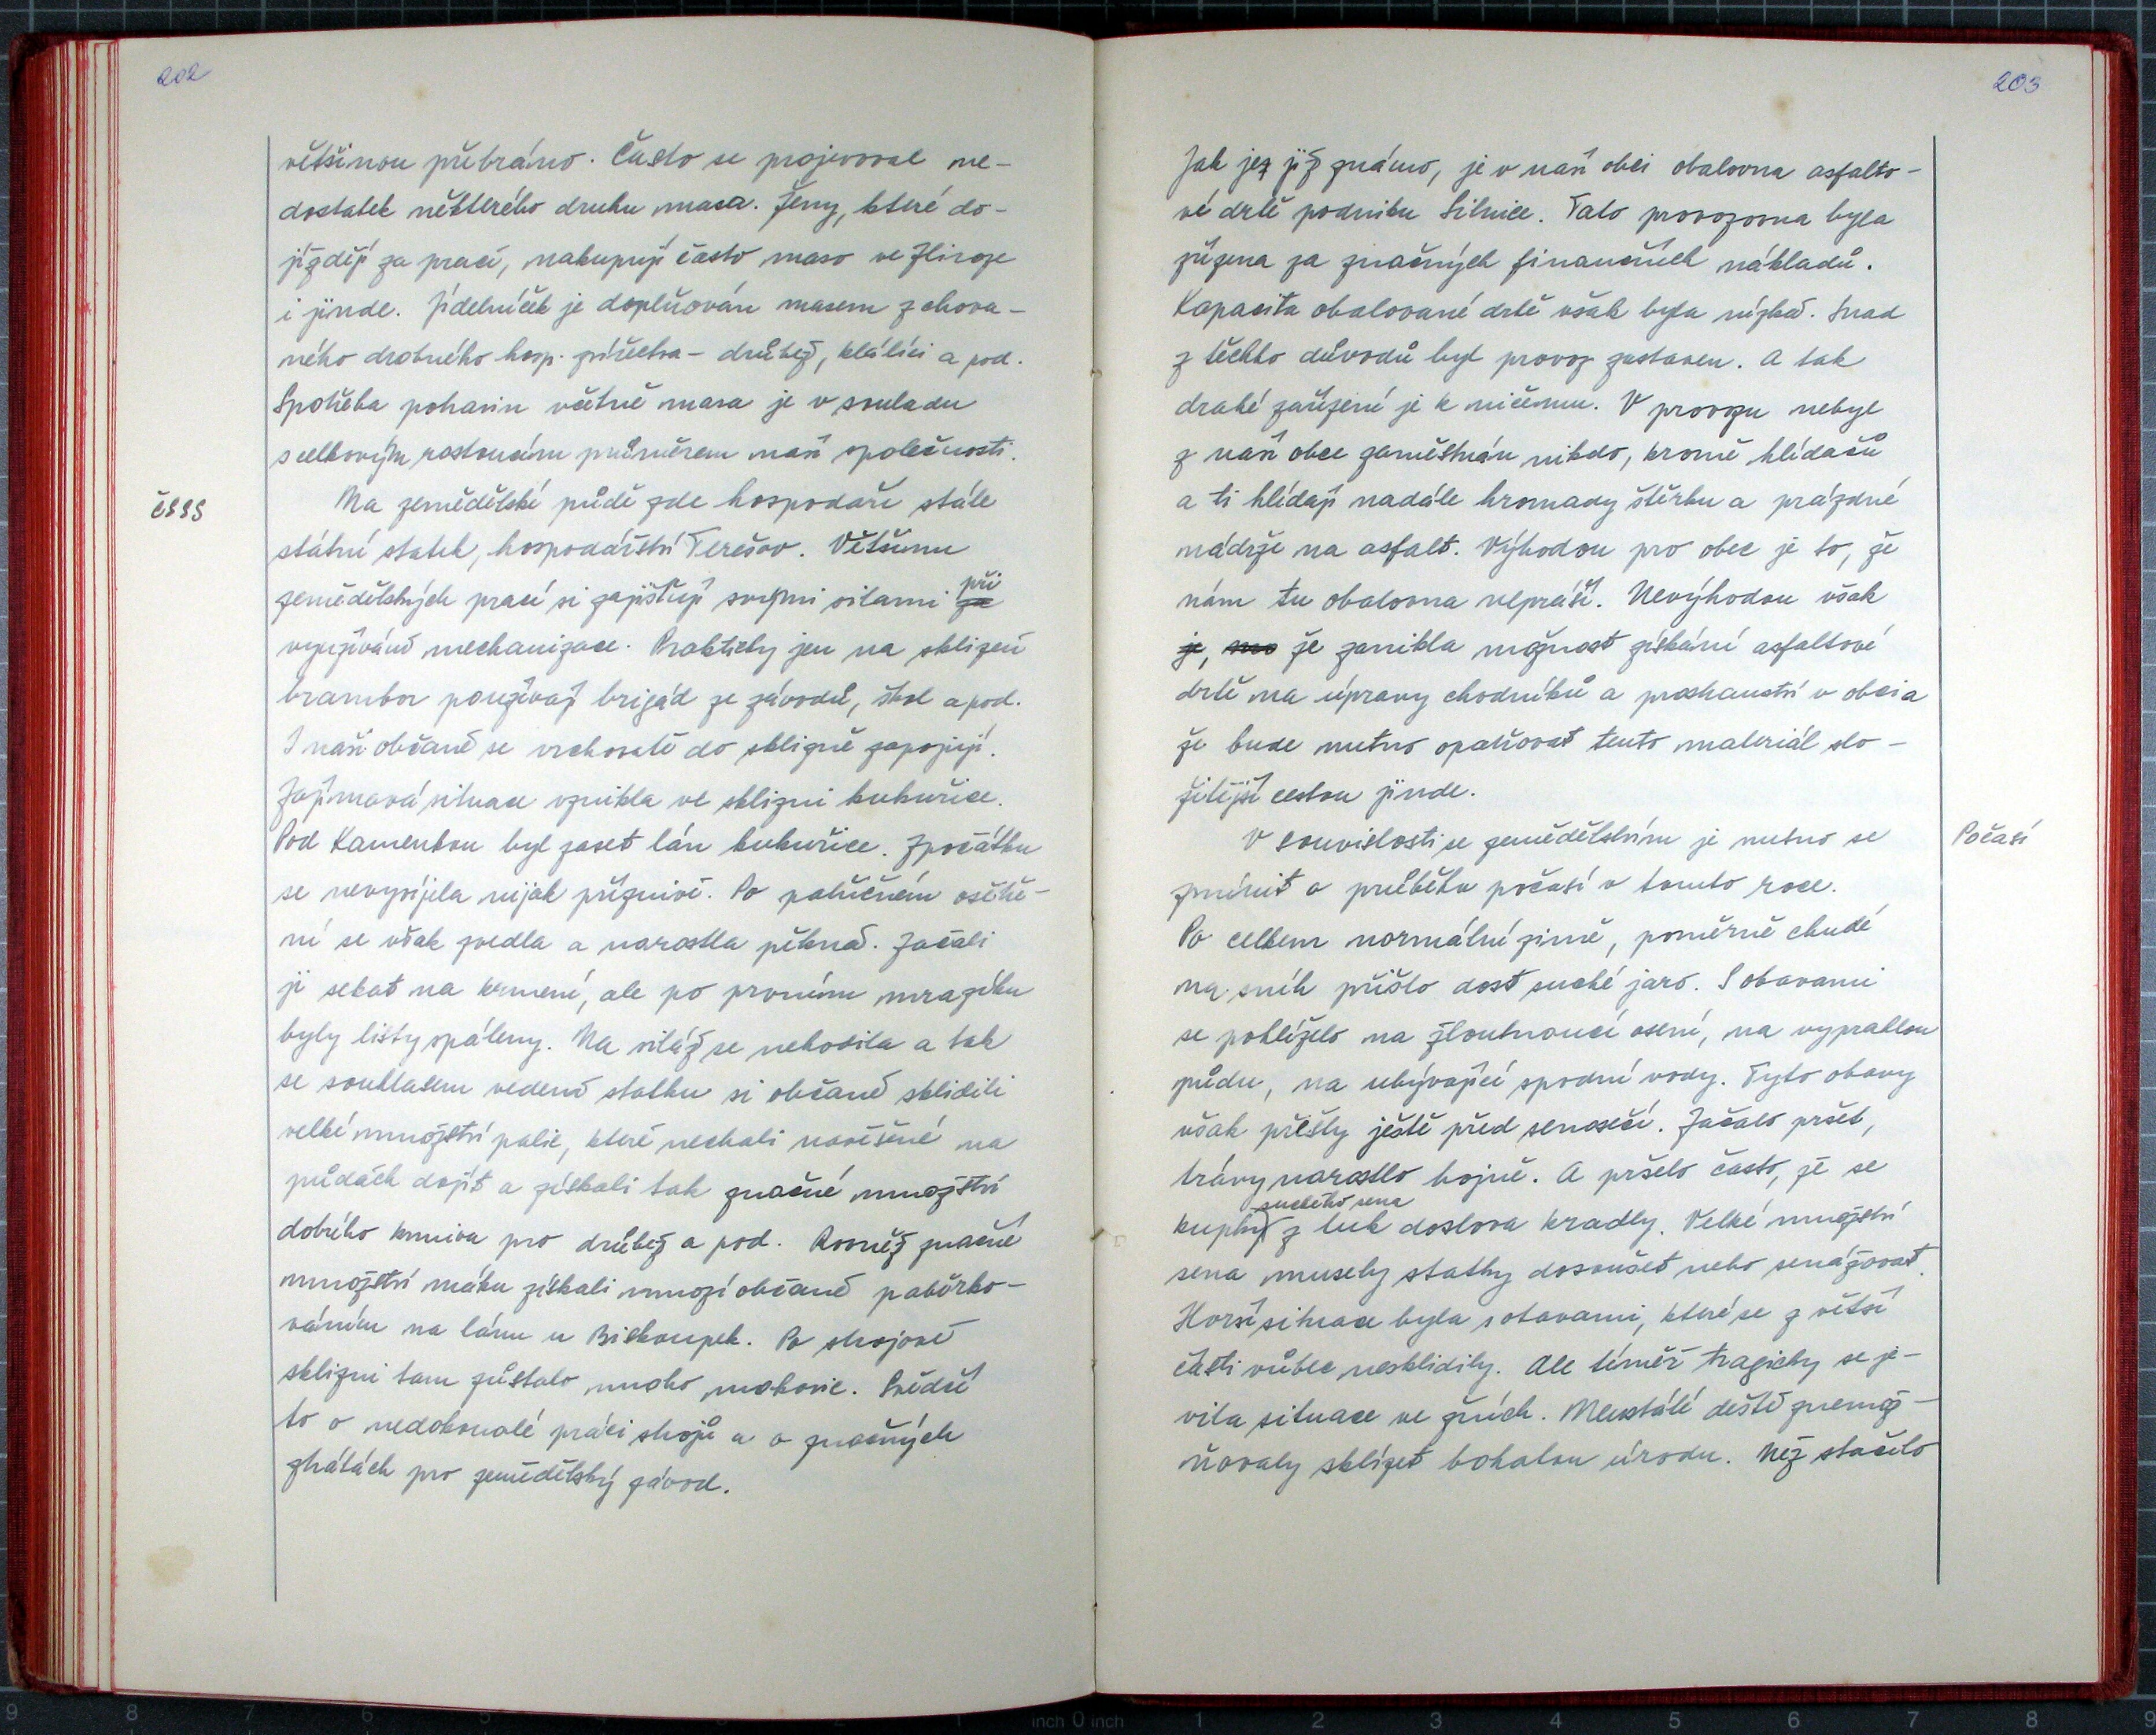 202
většinou přebráno. Často se projevoval ne-
dostatek některého druhu masa. Ženy, které do-
jíždějí za prací, nakupují často maso ve Zbiroze
i jinde. Jídelníček je doplňován masem z chova-
ného drobného hosp. zvířectva - drůbež, králíci a pod.
Spotřeba potravin včetně masa je v souladu
s celkovým rostoucím průměrem naší společnosti.
ČSSS
Na zemědělské půdě zde hospodaří stále
státní statek, hospodářství Terešov. Většinu
při
zemědělských prací si zajišťují svými silami za
využívání mechanizace. Prakticky jen na sklizeň
brambor používají brigád ze závodů, škol a pod.
I naši občané se vrchovatě do sklizně zapojují.
Zajímavá situace vznikla ve sklizni kukuřice.
Pod Kamenkou byl zaset lán kukuřice. Zpočátku
se nevyvíjela nijak příznivě. Po patřičném ošetře-
ní se však zvedla a narostla pěkná. Začali
ji sekat na krmení, ale po prvním mrazíku
byly listy spáleny. Na siláž se nehodila a tak
se souhlasem vedení statku si občané sklidili
velké množství palic, které nechali navěšené na
půdách dojít a získali tak značné množství
dobrého krmiva pro drůbež a pod. Rovněž značné
množství máku získali mnozí občané paběrko-
váním na lánu u Biskoupek. Po strojové
sklizni tam zůstalo mnoho makovic. Svědčí
to o nedokonalé práci strojů a o značných
ztrátách pro zemědělský závod.
203
Jak jez již známo, je v naší obci obalovna asfalto-
vé drtě podniku Silnice. Tato provozovna byla
zřízena za značných finančních nákladů.
Kapacita obalované drtě však byla nízká. Snad
z těchto důvodů byl provoz zastaven. A tak
drahé zařízení je k ničemu. V provozu nebyl
z naší obce zaměstnán nikdo, kromě hlídačů
a ti hlídají nadále hromady štěrku a prázdné
nádrže na asfalt. Výhodou pro obec je to, že
nám tu obalovna nepráší. Nevýhodou však
je, že zanikla možnost získání asfaltové
drtě na úpravy chodníků a prostranství v obci a
že bude nutno opatřovat tento materiál slo-
žitější cestou jinde.
Počasí
V souvislosti se zemědělstvím je nutno se
zmínit o průběhu počasí v tomto roce.
Po celkem normální zimě, poměrně chudé
na sníh přišlo dost suché jaro. S obavami
se pohlíželo na žloutnoucí osení, na vyprahlou
půdu, na ubývající spodní vody. Tyto obavy
však přešly ještě před senosečí. Začalo pršet,
trávy narostlo hojně. A pršelo často, že se
suchého sena
kupky z luk doslova kradly. Velké množství
sena musely statky dosoušet nebo senážovat.
Horší situace byla s otavami, které se z větší
části vůbec nesklidily. Ale téměř tragicky se je-
vila situace ve žních. Neustálé deště znemož-
ňovaly sklízet bohatou úrodu. Než stačilo